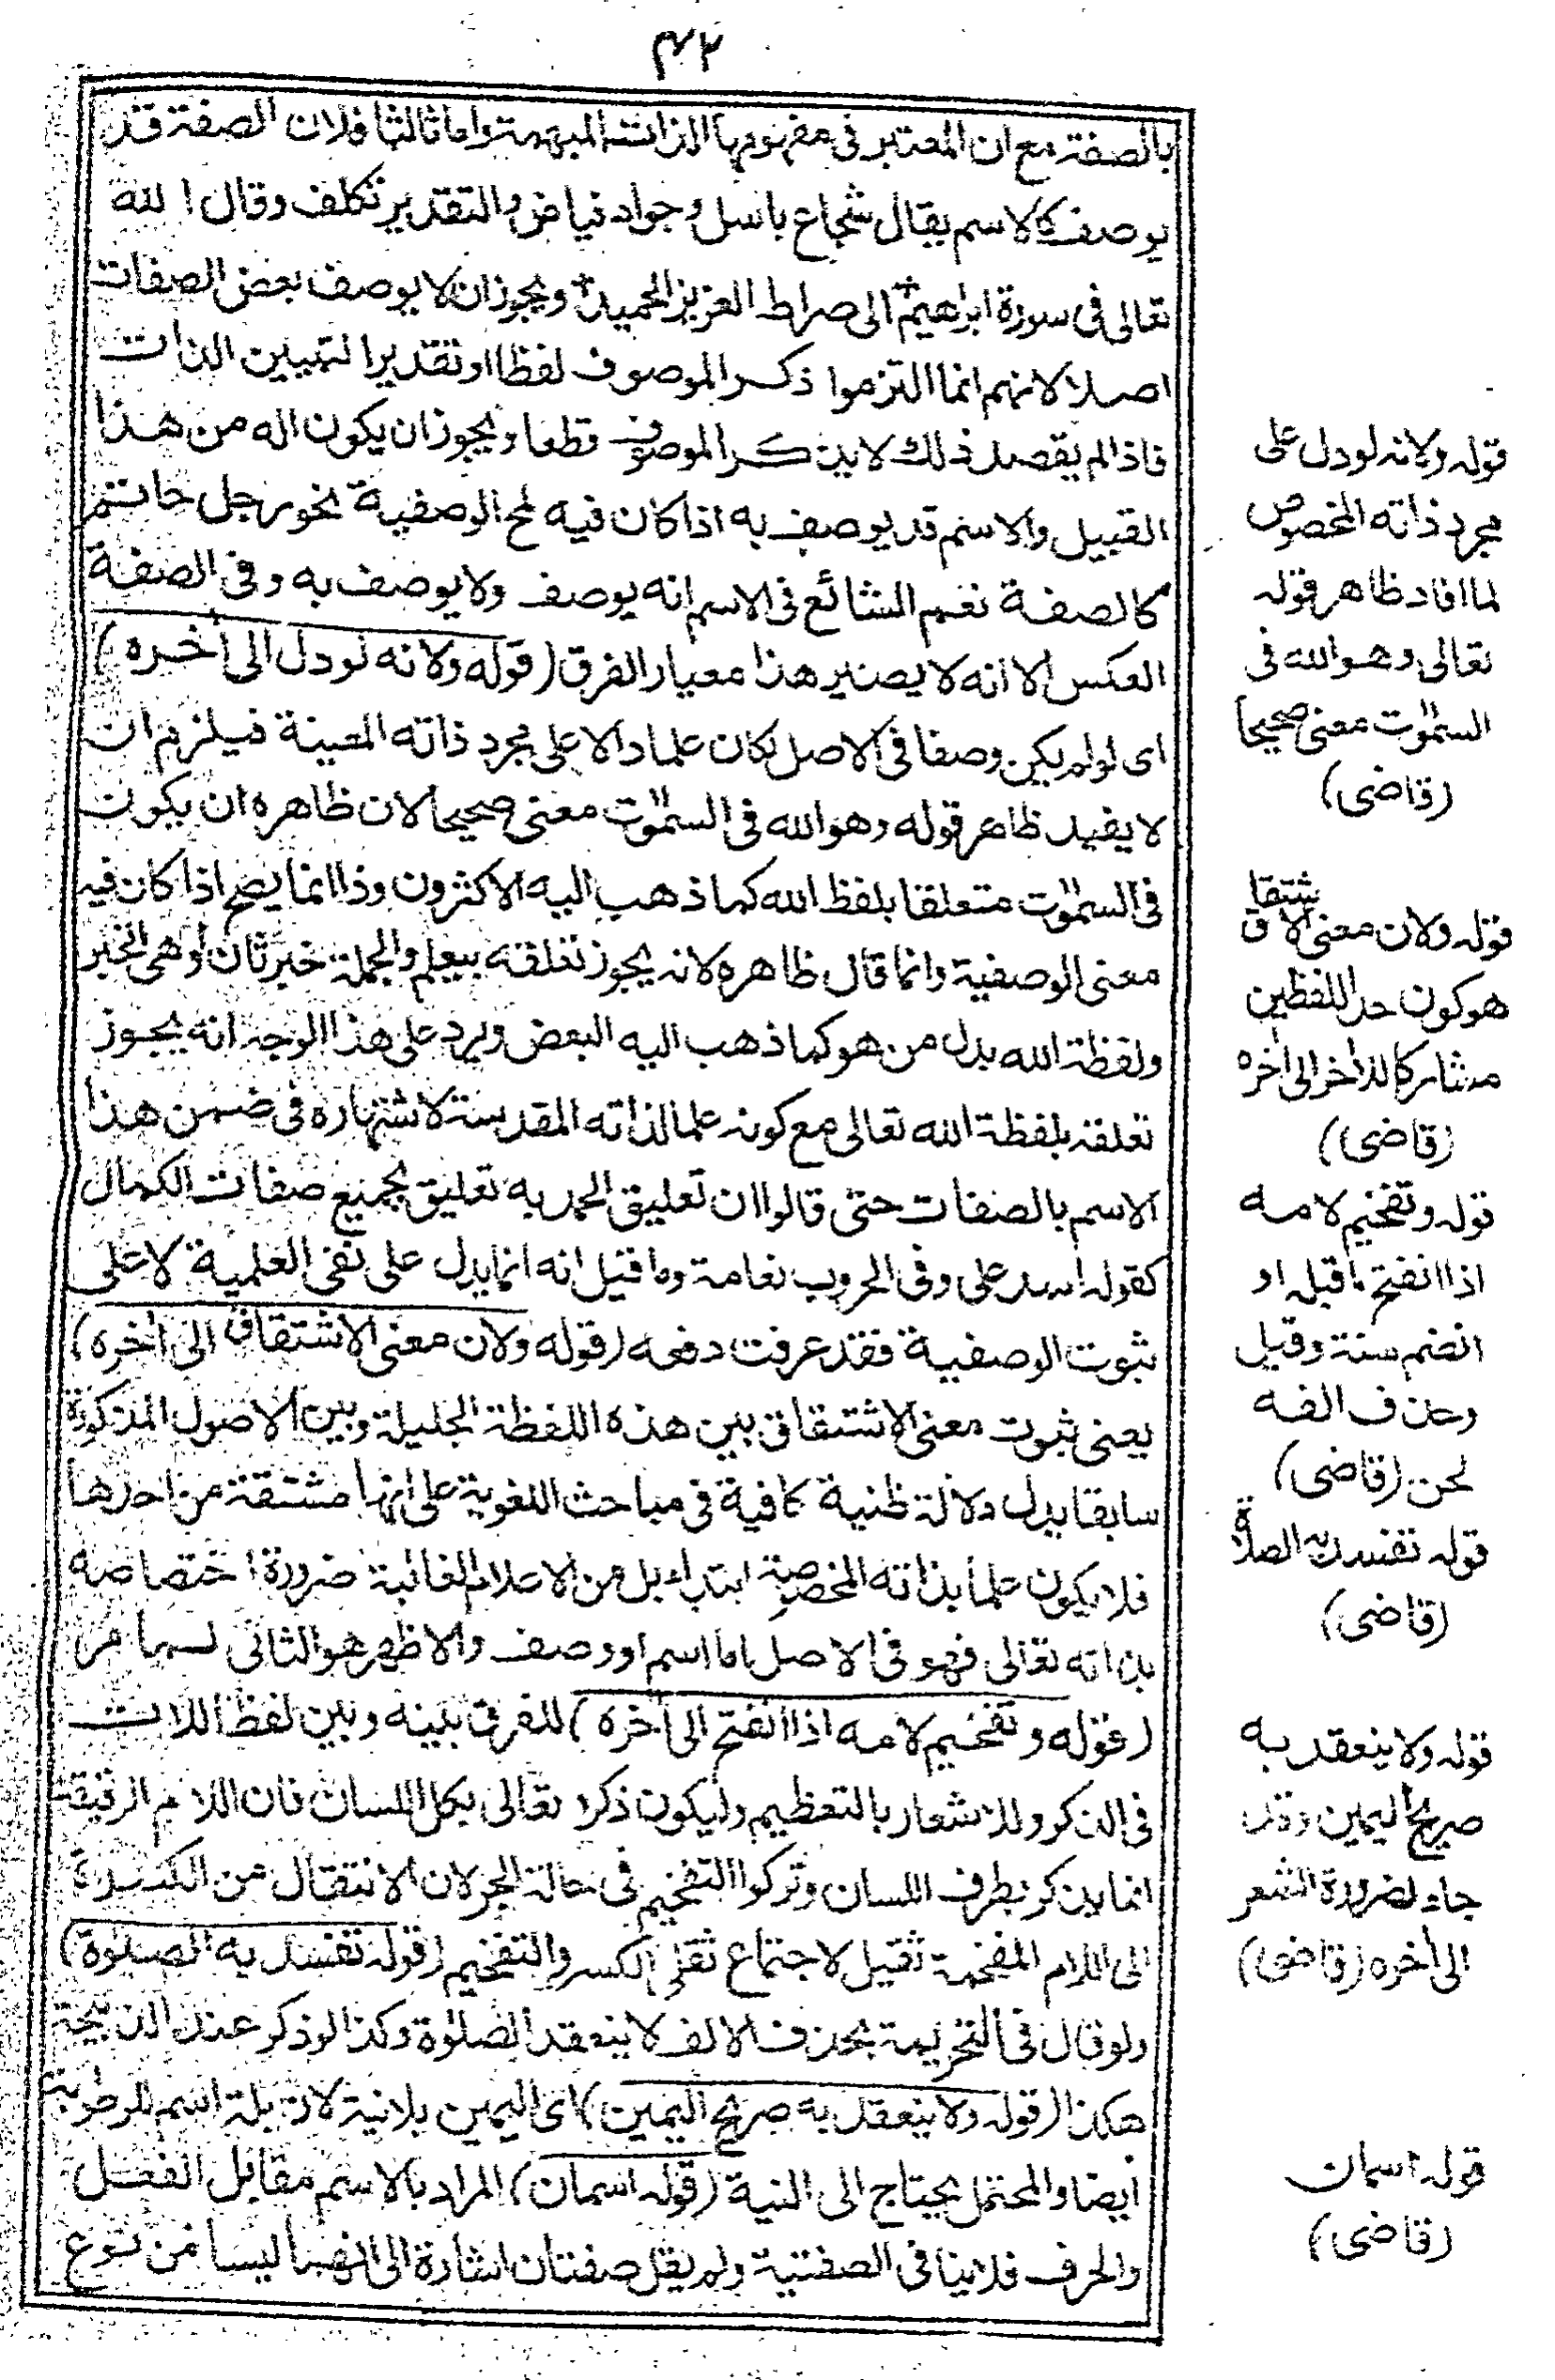 ٤٢
بالصفة مع ان المعتبر فى مفهومها الذات المبهمة واما ثالثا فلان الصفة قد
يوصف كالاسم يقال شجاع باسل وجواد فياض والتقدير تكلف وقال الله
تعالى فى سورة ابراهيم الى صراط العزيز الحميد ويجوز ان لا يوصف بعض الصفات
اصلا لانهم انما التزموا ذكر الموصوف لفظا او تقديرا لتعيين الذات
فاذا لم يقصد ذلك لا يذكر الموصوف قطعا ويجوز ان يكون اله من هذا
القبيل والاسم قد يوصف به اذا كان فيه لمح الوصفية نحو رجل حاتم
كالصفة نعم الشائع فى الاسم انه يوصف ولا يوصف به وفى الصفة
العكس الا انه لا يصير هذا معيار الفرق (قوله ولانه لو دل الى أخره)
اى لو لم يكن وصفا فى الاصل لكان علما دالا على مجرد ذاته المعينة فيلزم ان
لا يفيد ظاهر قوله وهو الله فى السمٰوٰت معنى صحيحا لان ظاهره ان يكون
فى السمٰوٰت متعلقا بلفظ الله كما ذهب اليه الاكثرون وذا انما يصح اذا كان فيه
معنى الوصفية وانما قال ظاهره لانه يجوز تعلقه بيعلم والجملة خبر ثان او هى الخبر
ولفظة الله بدل من هو كما ذهب اليه البعض ويرد على هذا الوجه انه يجوز
تعلقه بلفظة الله تعالى مع كونه علما لذاته المقدسة لاشتهاره فى ضمن هذا
الاسم بالصفات حتى قالوا ان تعليق الحمد به تعليق بجميع صفات الكمال
كقوله اسد على وفى الحروب نعامة وما قيل انه انما يدل على نفى العلمية لا على
ثبوت الوصفية فقد عرفت دفعه (قوله ولان معنى الاشتقاق الى أخره)
يعنى ثبوت معنى الاشتقاق بين هذه اللفظة الجليلة وبين الاصول المذكورة
سابقا يدل دلالة ظنية كافية فى مباحث اللغوية على انها مشتقة من احدها
فلا يكون علما بذاته المخصوصة ابتداء بل من الاعلام الغالبة ضرورة اختصاصه
بذاته تعالى فهو فى الاصل اما اسم او وصف والاظهر هو الثانى لما مر
(قوله وتفخيم لامه اذا انفتح الى أخره) للفرق بينه وبين لفظ اللات
فى الذكر وللاشعار بالتعظيم وليكون ذكره تعالى بكل اللسان فان اللام الرقيقة
انما يذكر بطرف اللسان وتركوا التفخيم فى حالة الجر لان الانتقال من الكسرة
الى اللام المفخمة ثقيل لاجتماع ثقل الكسر والتفخيم (قوله تفسد به الصلوة)
ولو قال فى التحريمة بحذف الالف لا ينعقد الصلوة وكذا لو ذكر عند الذبيحة
هكذا (قوله ولا ينعقد به صريح اليمين) اى اليمين بلا نية لان بلة اسم للرطوبة
أيضا والمحتمل يحتاج الى النية (قوله اسمان) المراد بالاسم مقابل الفعل
والحرف فلا ينافى الصفتية ولم يقل صفتان اشارة الى انهما ليسا من نوع
قوله ولانه لو دل على
مجرد ذاته المخصوص
لما افاد ظاهر قوله
تعالى وهو الله فى
السمٰوٰت معنى صحيحا
(قاضى)
قوله ولان معنى الاشتقاق
هو كون احد اللفظين
مشاركا للأخر الى أخره
(قاضى)
قوله وتفخيم لامه
اذا انفتح ما قبله او
انضم سنة وقيل
وحذف الفه
لحن (قاضى)
قوله تفسد به الصلاة
(قاضى)
قوله ولا ينعقد به
صريح اليمين وقد
جاء لضرورة الشعر
الى أخره (قاضى)
قوله اسمان
(قاضى)